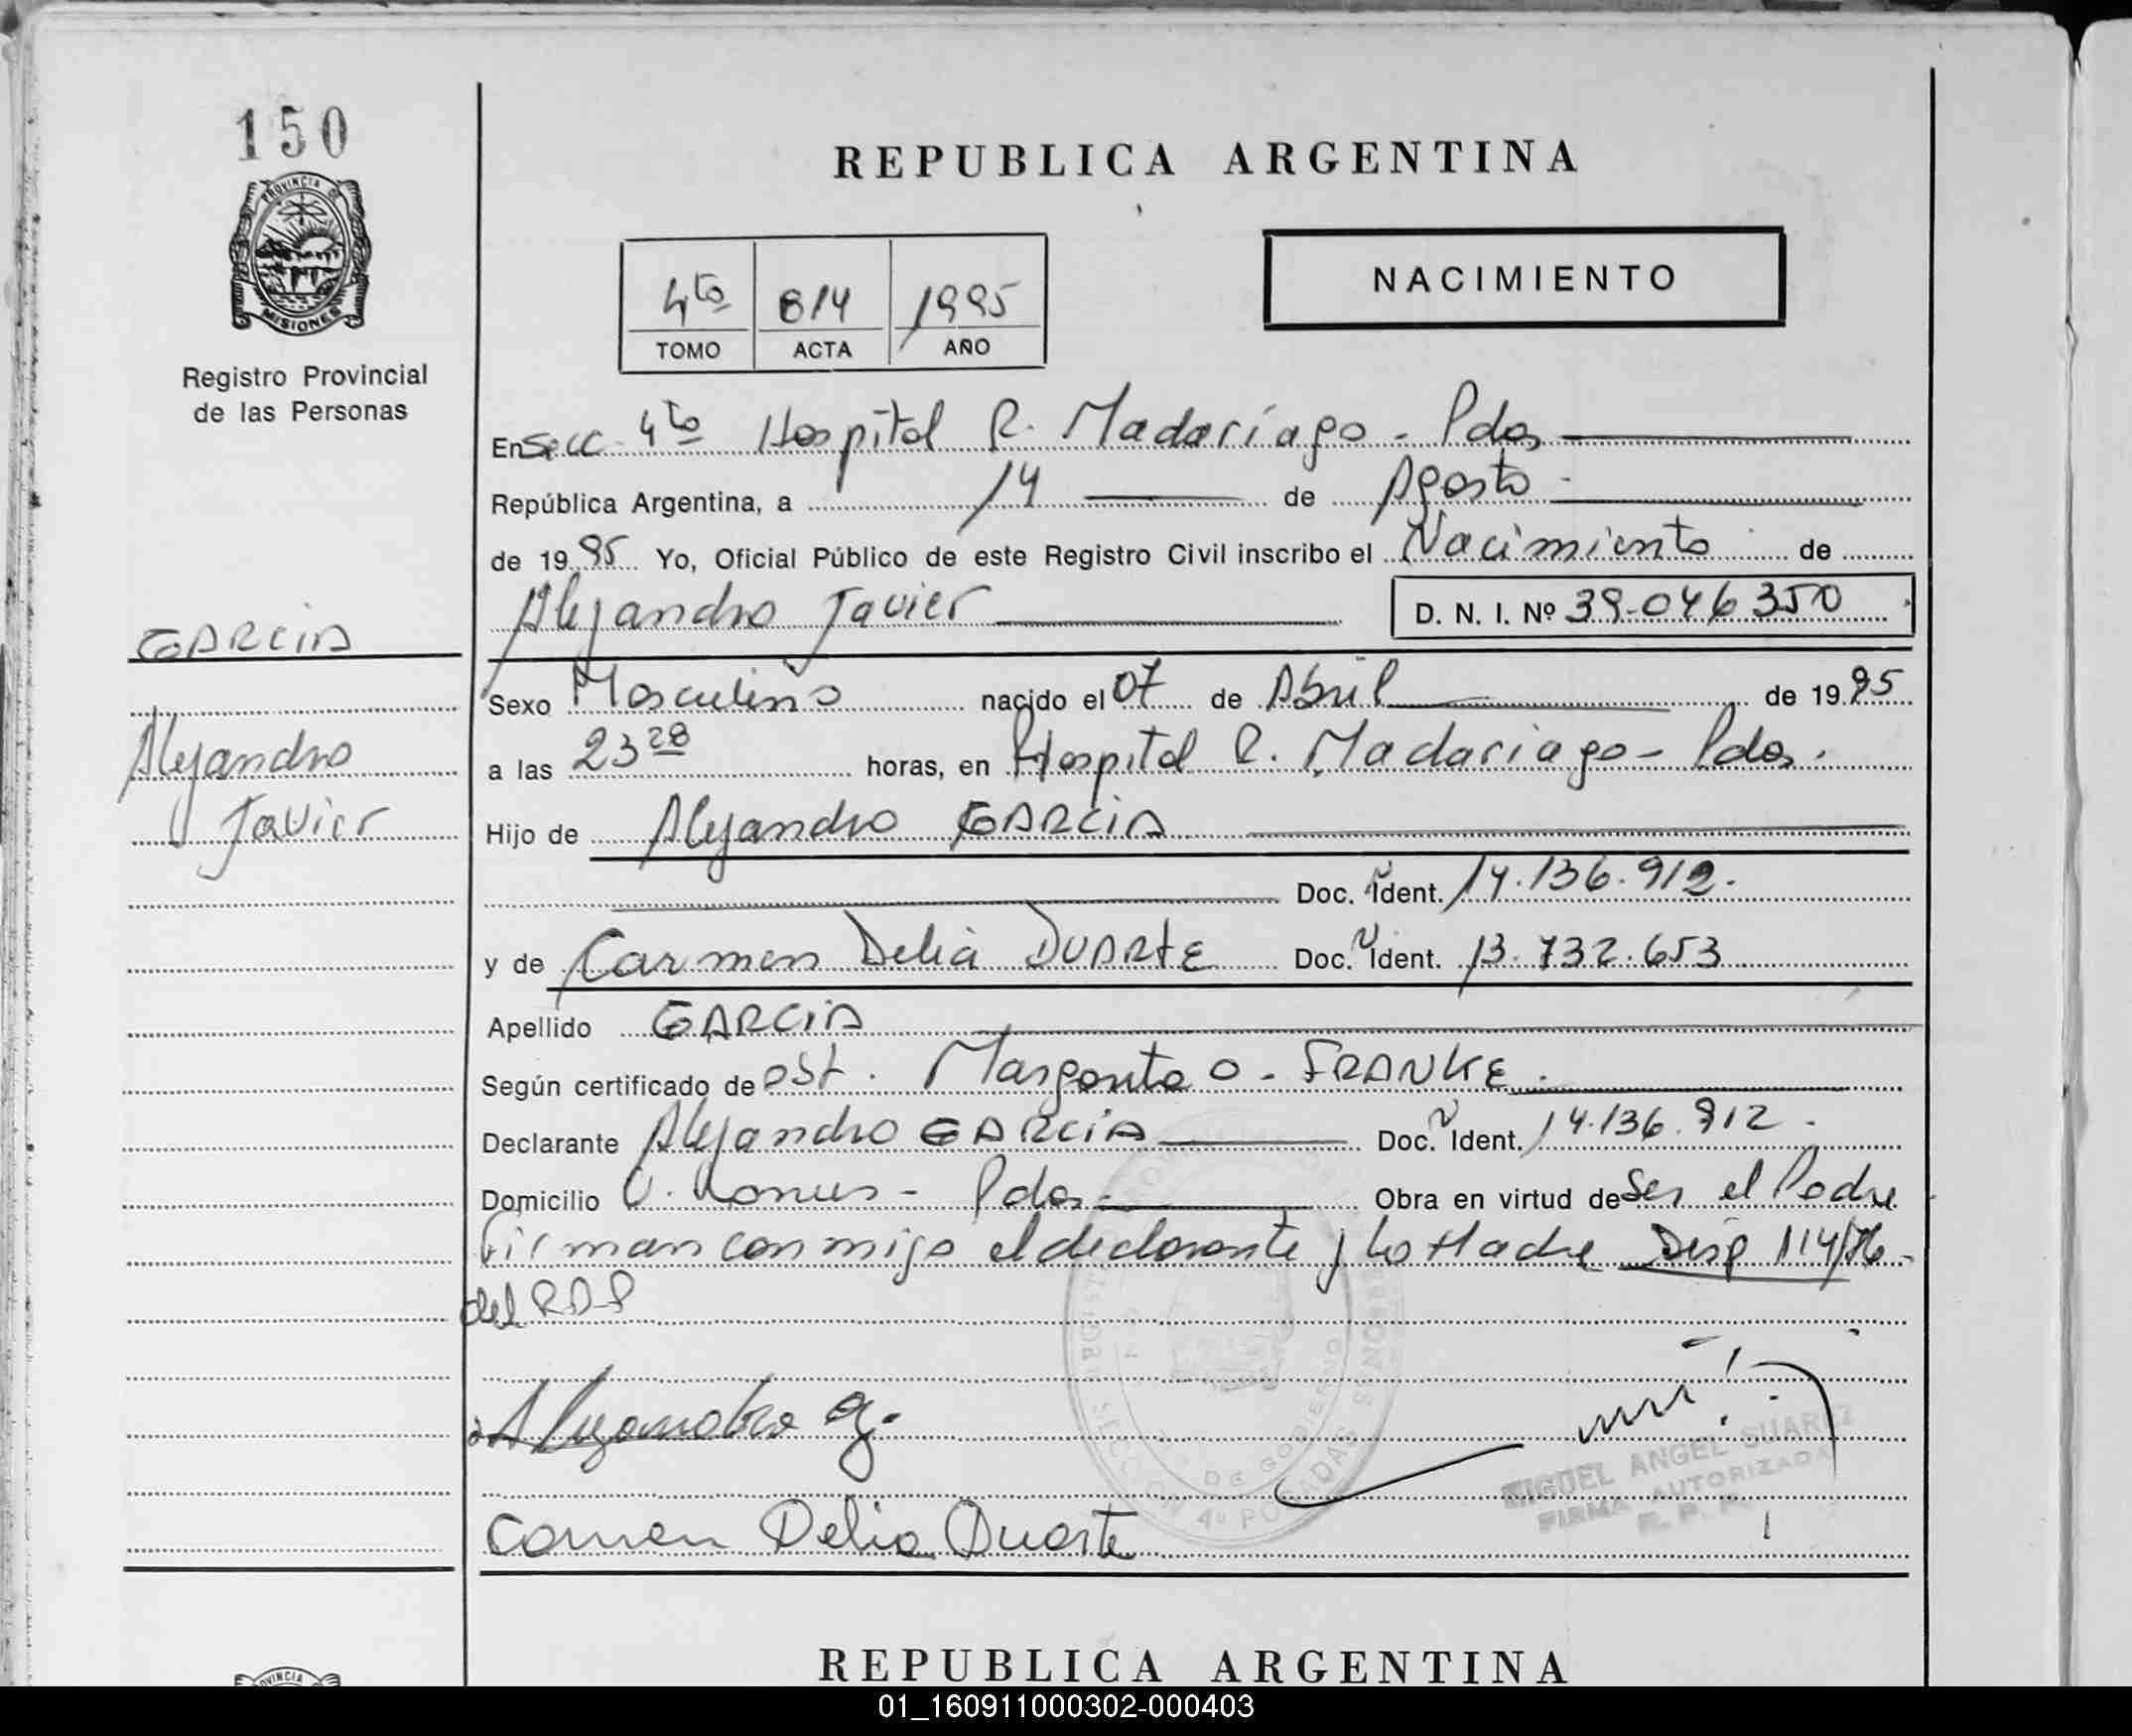 150
PROVINCIA DE
MISIONES
Registro Provincial
de las Personas
REPUBLICA ARGENTINA
NACIMIENTO
4to 814 1995
TOMO ACTA AÑO
En Secc. 4to Hospital R. Madariaga - Pdas
República Argentina, a 14 de Agosto
de 1995 Yo, Oficial Público de este Registro Civil inscribo el Nacimiento de
Alejandro Javier D. N. I. Nº 39.046350
GARCIA
Alejandro
Javier
Sexo Masculino nacido el 07 de Abril de 1995
a las 23 28 horas, en Hospital R. Madariaga - Pdas.
Hijo de Alejandro GARCIA
Doc. Ident. 14.136.912.
y de Carmen Delia DUARTE Doc. Ident. 13.732.653
Apellido GARCIA
Según certificado de obst. Margarita O. FRANKE.
Declarante Alejandro GARCIA Doc. Ident. 14.136.912.
Domicilio Pdas. Obra en virtud de Ser el Padre
Firman conmigo el declarante y la Madre Disp 114/76
del RDP
Alejandro G.
Carmen Delia Duarte
MIGUEL ANGEL SUAREZ
FIRMA AUTORIZADA
R. P. P.
SECCION 4º POSADAS
DE GOBIERNO
REPUBLICA ARGENTINA
01_160911000302-000403